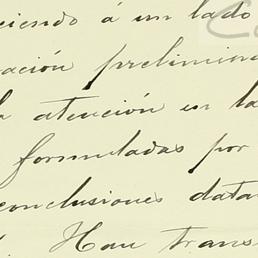 ciendo á un lado
ación preliminar
la atención en la
formuladas por
conclusiones data
Han trans